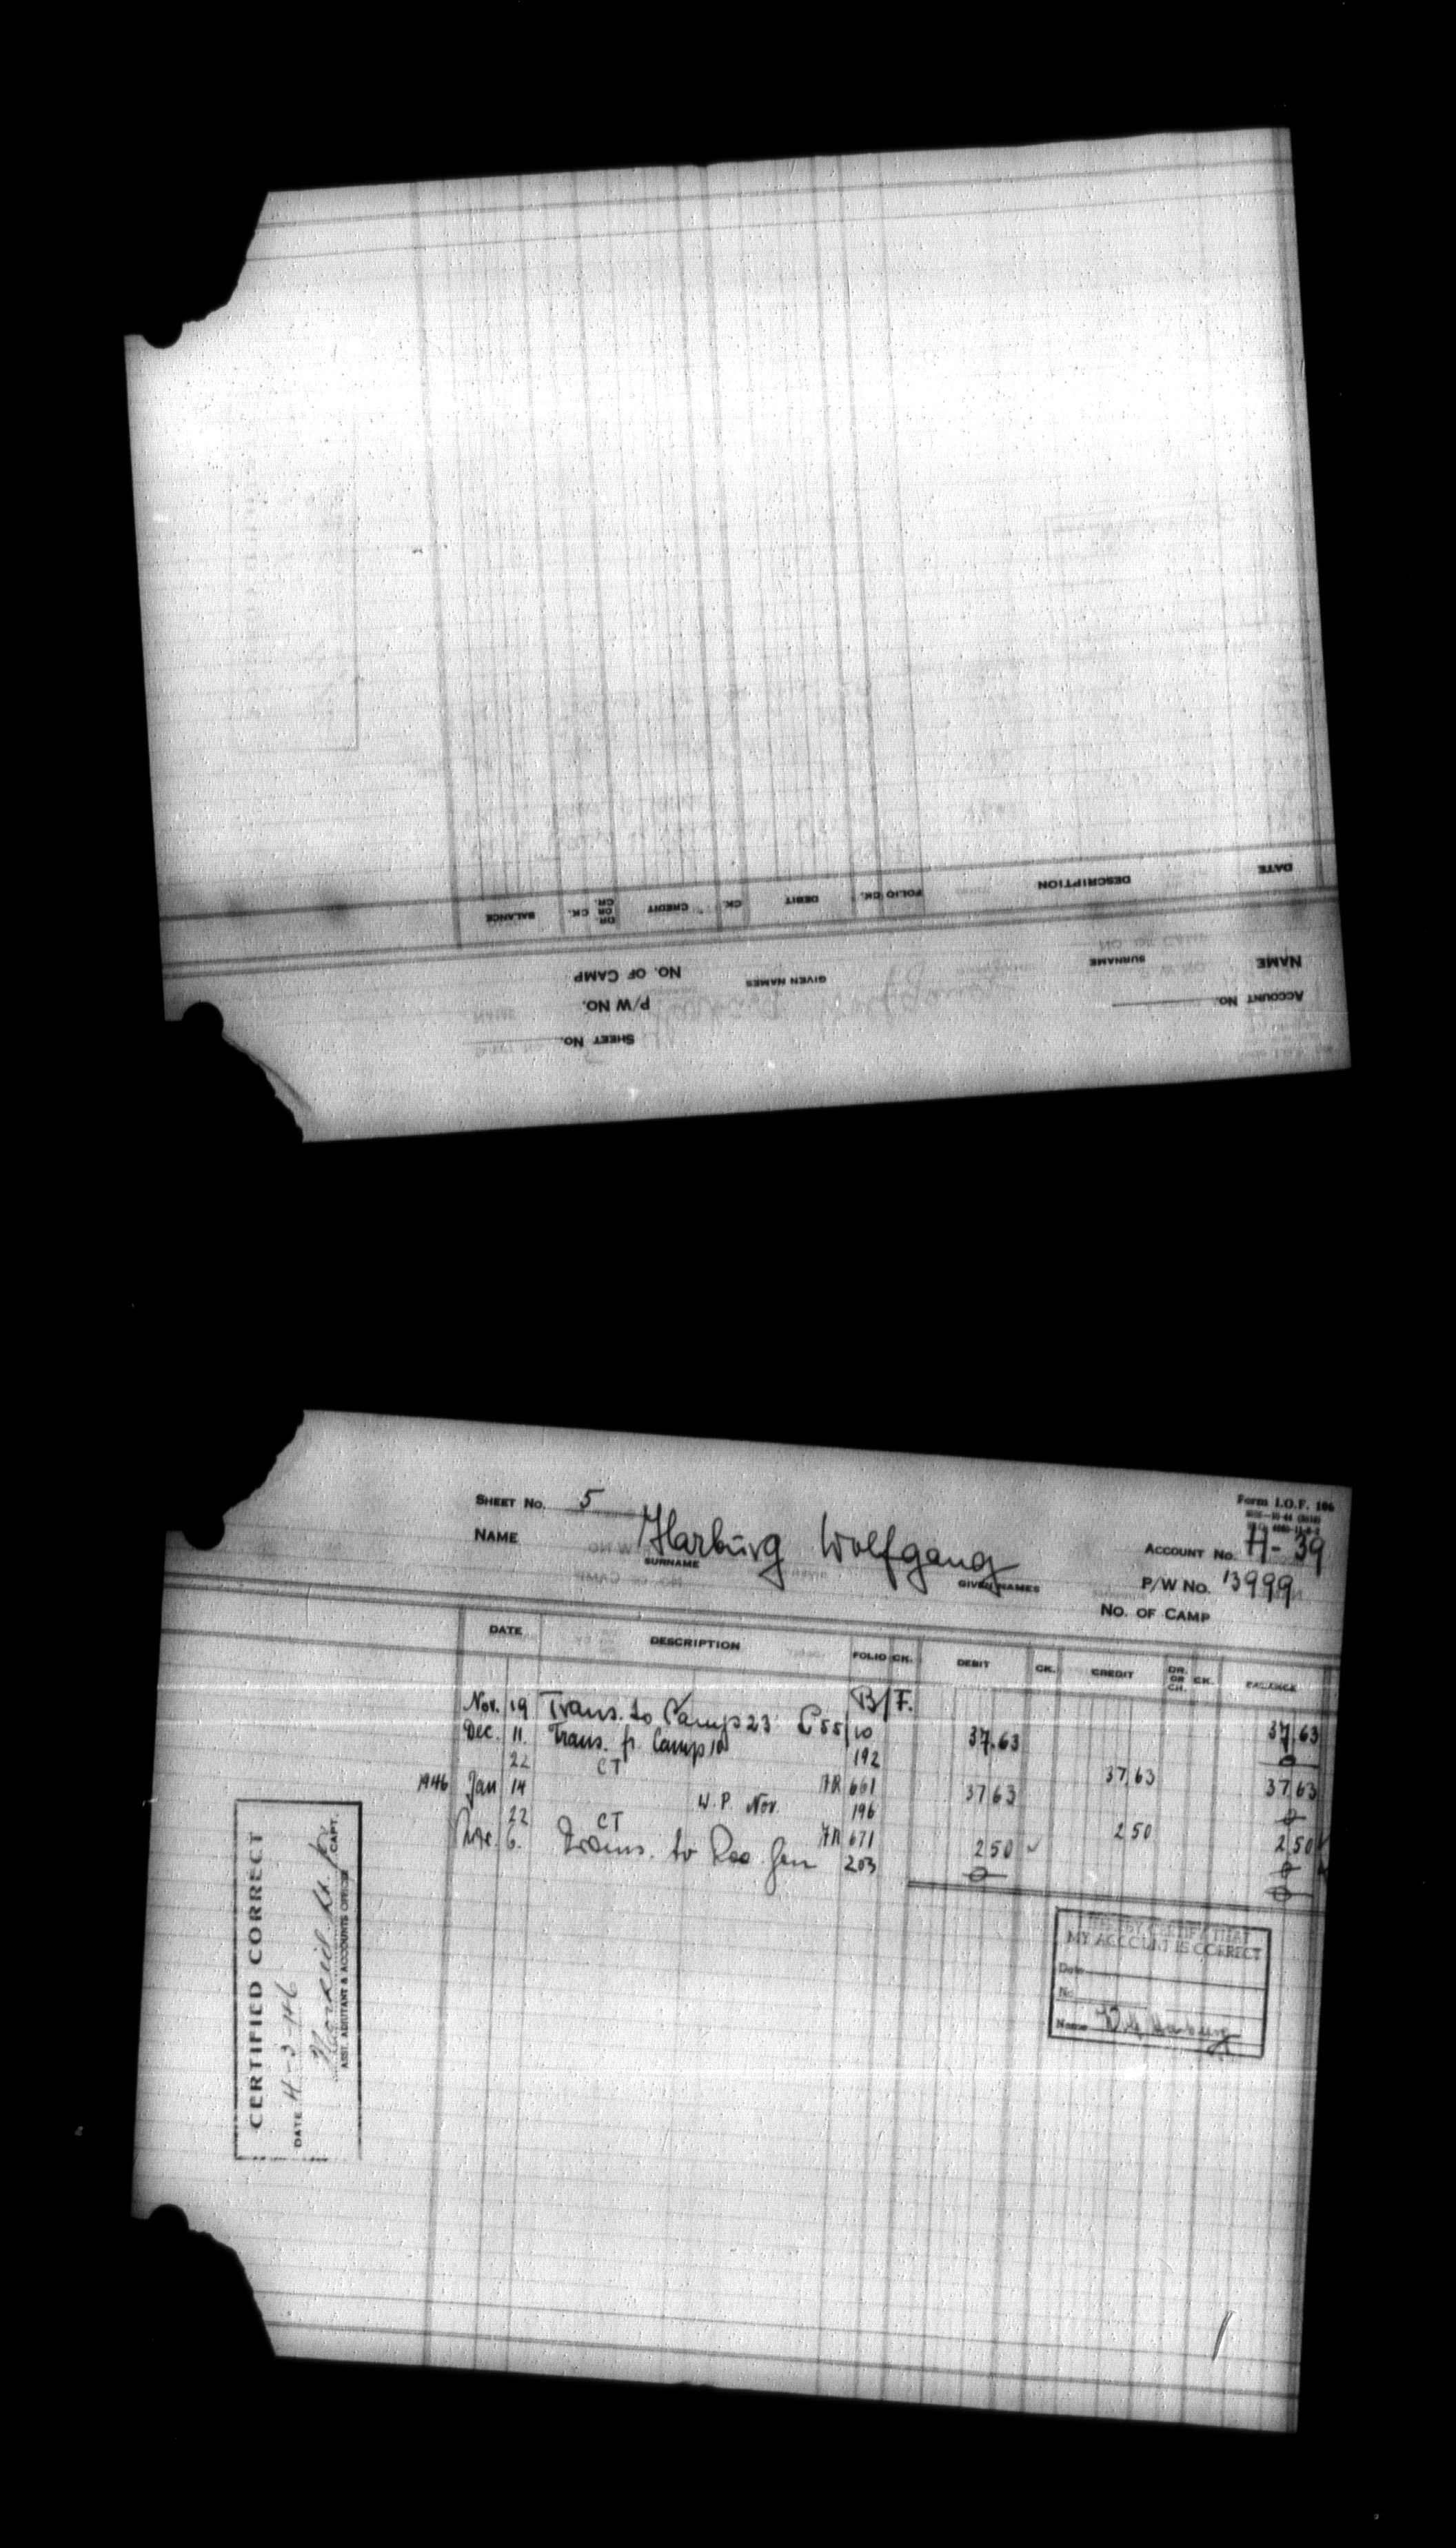 ACCOUNT No.
SHEET No.
P/W No.
NAME
SURNAME
GIVEN NAMES
No. OF CAMP
DATE
DESCRIPTION
FOLIO CK.
DEBIT
CK.
CREDIT
DR. OR CR.
CK.
BALANCE
Form I.O.F. 106
SHEET No. 5
ACCOUNT No. H-39
NAME Harburg Wolfgang
SURNAME
GIVEN NAMES
P/W No. 13999
No. OF CAMP
DATE DESCRIPTION FOLIO CK. DEBIT CK. CREDIT DR. OR CR. CK. BALANCE
B/F. 37.63
Nov. 19 Trans. to Camp 23 55/10 37.63
Dec. 11. Trans. fr. Camp 10 192 37 63 37 63
22 CT FR 661 37 63
1946 Jan 14 W.P. Nov. 196 2 50 2 50
22 CT FR 671 2 50
6. Trans. to 203
I HEREBY CERTIFY THAT
MY ACCOUNT IS CORRECT
Date
No.
Name
CERTIFIED CORRECT
DATE 4-3-46
CAPT.
ASST. ADJUTANT & ACCOUNTS OFFICER